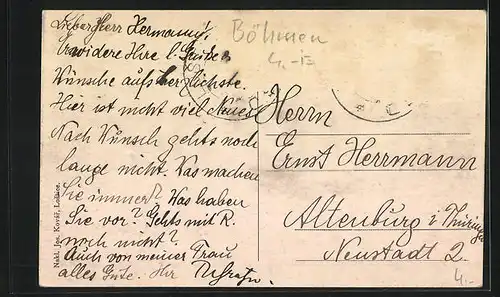 Lieber Herr Hermann!
Erwidere Ihre l. Grüße
Wünsche aufs herzlichste.
Hier ist nicht viel Neues
Nach Wunsch gehts noch
lange nicht. Was machen
Sie immer? Was haben
Sie vor? Gehts mit R.
noch nicht?
Auch von meiner Frau
alles Gute. Ihr
Böhmen
4.-
Herrn
Ernst Herrmann
Altenburg i. Thüringen
Neustadt 2.
4.-
Nakl. Ign. Kovář, Ledče.